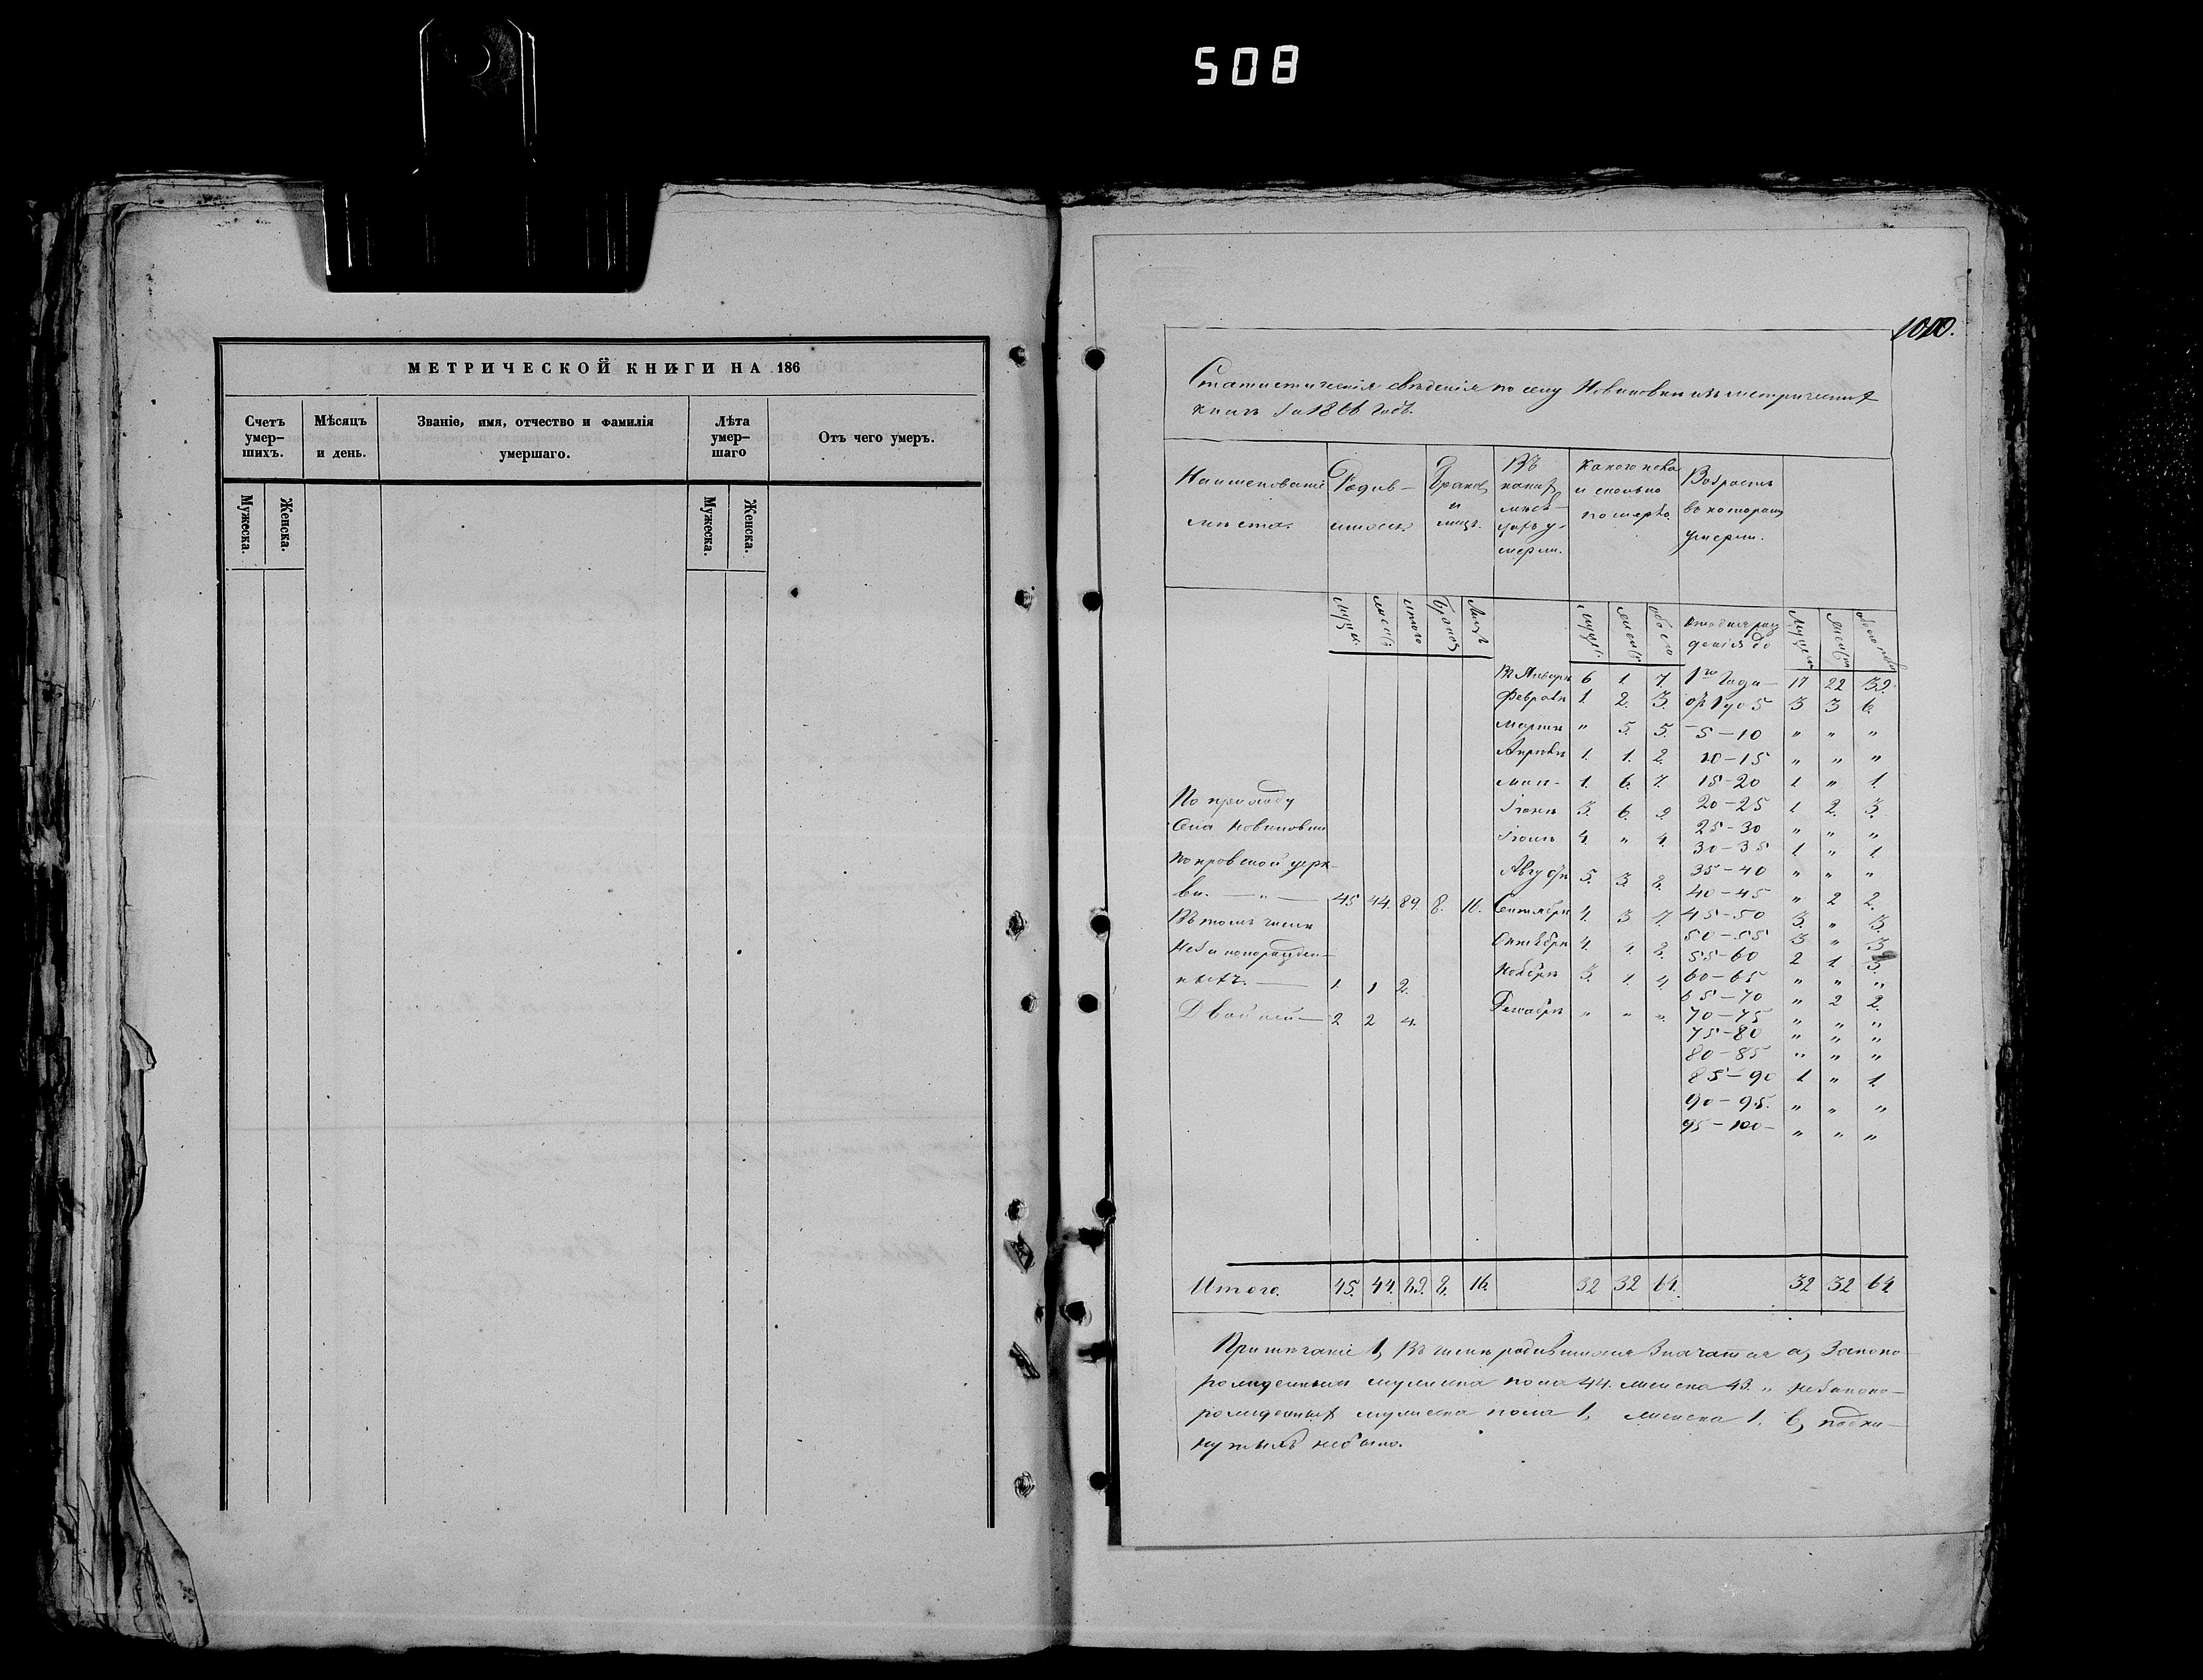 508
МЕТРИЧЕСКОЙ КНИГИ НА 186
Счетъ умер-шихъ.
Мѣсяцъ и день.
Званіе, имя, отчество и фамилія умершаго.
Лѣта умер-шаго
Отъ чего умеръ.
Мужеска. Женска. Мужеска. Женска.
Статистическія свѣденія по селу Новиковки изъ метрическихъ
книгъ за 1866 годъ.
Наименованіе мѣста.
Родив-шихся.
Браковъ и лицъ.
Въ какихъ мѣся-цахъ у-мерли.
Какого пола и сколько померло.
Возрастъ въ которомъ умерли.
мужс. женс. итого браковъ лицъ мужс. женс. обоего
отъ дня рож-денія до
Въ Январѣ 6 1 7. 1го года — 17 22 39.
Февралѣ 1. 2. 3. отъ 1 до 5 3 3 6.
Мартѣ " 5. 5. — 5 — 10 " " "
Апрѣлѣ 1. 1. 2. 10 — 15 " " "
Маѣ — 1. 6. 7. 15 — 20 1 " 1.
Іюнѣ 3. 6. 9. 20 — 25 1 2. 3.
25 — 30 " " "
Іюлѣ 4. " 4. 30 — 35 1 " 1
Августѣ 5. 3. 8. 35 — 40 " " "
40 — 45 " 2 2.
По приходу
села Новиковки
Покровской церк-
ви. — " — 45 44. 89. 8. 16. Сентябрѣ 4. 3 7. 45 — 50 3. " 3.
Въ томъ числѣ
50 — 55 3 " 3
незаконорожден-
Октябрѣ 4. 55 — 60 2 1 3.
ныхъ. — 1. 1 2. Ноябрѣ 3. 1. 4. 60 — 65 " " "
65 — 70 " 2 2.
Двойней — 2 2 4. Декабрѣ " " " 70 — 75 " " "
75 — 80 " " "
80 — 85 " " "
85 — 90 1 " 1.
90 — 95. " " "
95 — 100 — " " "
Итого. 45. 44. 89. 8. 16. 32 32 64. 32 32 64
Примѣчаніе 1, Въ числѣ родившихся значатся а, Законо-
рожденныхъ мужеска пола 44. женска 43. " незаконо-
рожденныхъ мужеска пола 1, женска 1. в, подки-
нутыхъ небыло.